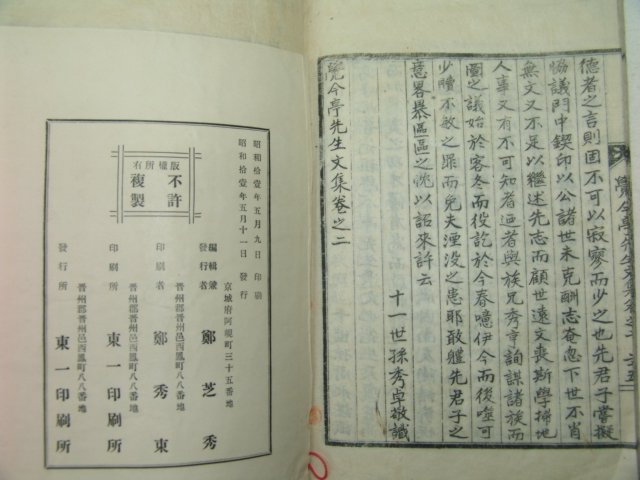 德者之言則固不可以寂寥而少之也先君子嘗擬
恊議門中鍥印以公諸世未克酬志奄忽下世不肖
無文又不足以繼述先志而顧世遠文喪斯學掃地
人事又有不可知者迺者與族兄秀章詢謀諸族而
圖之議始於客冬而役訖於今春噫伊今而後噫可
少贖不敏之罪而免夫湮沒之患耶敢軆先君子之
意畧擧區區之忱以詔來許云
十一世孫秀卓敬識
覺今亭先生文集卷之二
昭和拾壹年五月九日 印刷
昭和拾壹年五月十一日 發行
京城府阿峴町三十五番地
編輯兼發行者 鄭芝秀
晋州郡晋州邑西鳳町八八番地
印刷者 鄭秀東
晋州郡晋州邑西鳳町八八番地
印刷所 東一印刷所
晋州郡晋州邑西鳳町八八番地
發行所 東一印刷所
版權所有
不許複製